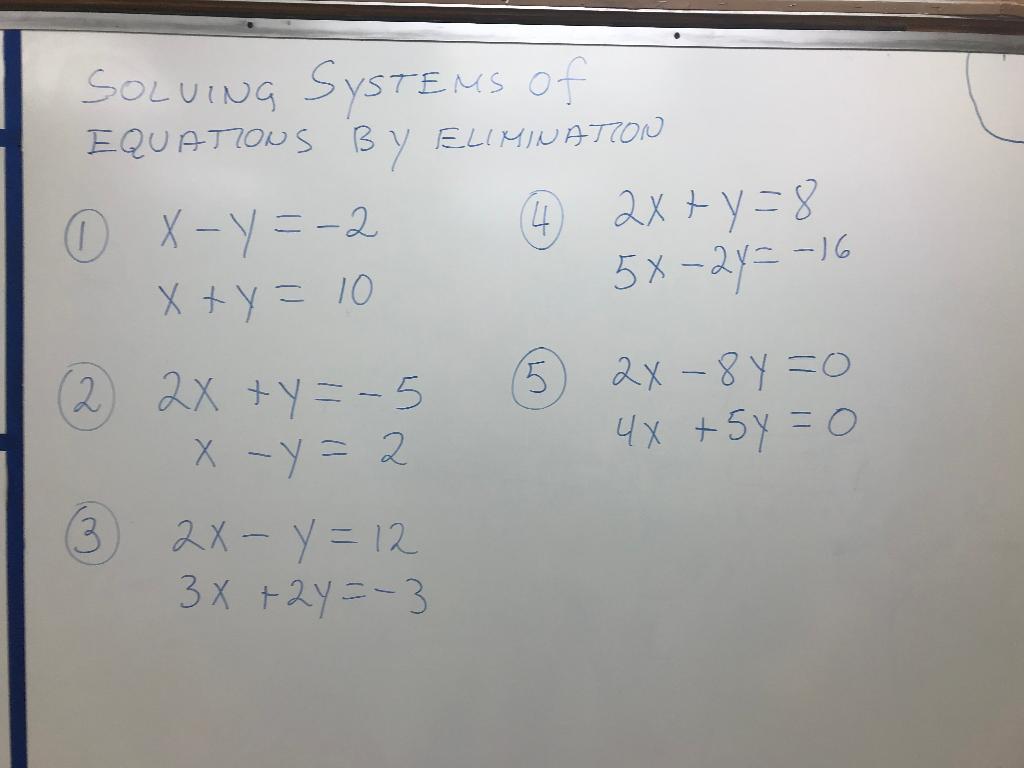 SOLVING SYSTEMS Of
EQUATIONS BY ELIMINATION
① X - Y = -2
X + Y = 10
② 2X + Y = -5
X - Y = 2
③ 2X - Y = 12
3X + 2Y = -3
④ 2X + Y = 8
5X - 2Y = -16
⑤ 2X - 8Y = 0
4X + 5Y = 0